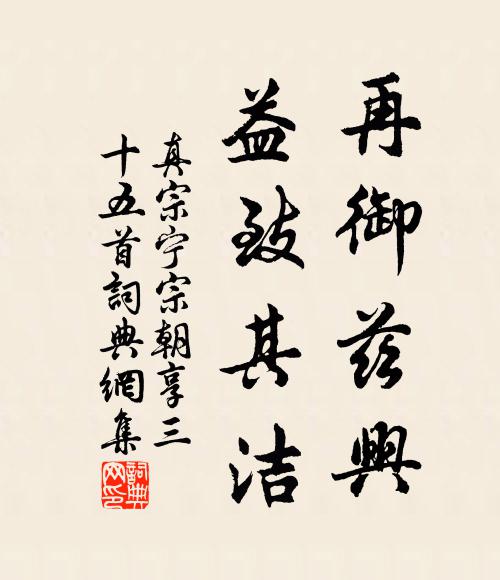 再御茲興
益致其洁
真宗宁宗朝享三
十五首詞典網集
詞典
网印